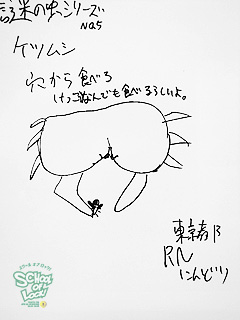 謎の虫シリーズ
No.5
ケツムシ
穴から食べる
けっこうなんでも食べるらしいよ。
東京都
RN
にんどり
SCHOOL
OF
LOCK!